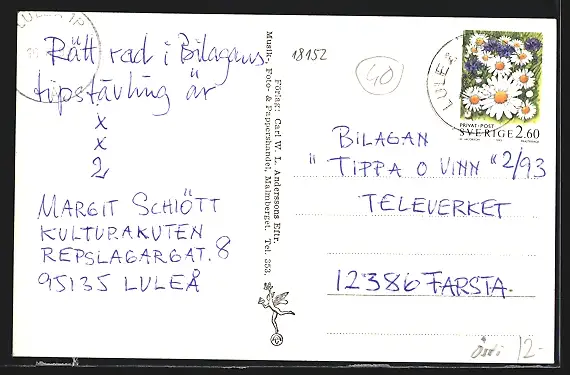 Rätt rad i Bilagans
tipstävling är
x
x
2
MARGIT SCHIÖTT
KULTURAKUTEN
REPSLAGARGAT. 8
95135 LULEÅ
Förlag: Carl W. L. Anderssons Eftr.
Musik-, Foto- & Pappershandel, Malmberget. Tel. 253.
18152
40
LULEÅ
PRIVAT-POST
SVERIGE 2.60
BILAGAN
"TIPPA O VINN" 2/93
TELEVERKET
12386 FARSTA
12-